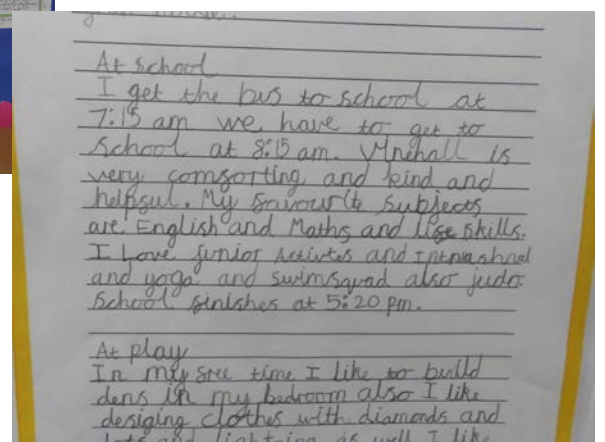 At school
I get the bus to school at
7:15 am we have to get to
school at 8:15 am. Mrehall is
very comforting and kind and
helpful. My favourite subjects
are English and Maths and life skills.
I Love junior Activtes and
and yoga and swimsquad also judo
School finishes at 5:20 pm.
At play
In my free time I like to build
dens in my bedroom also I like
desiging clothes with diamonds and
lots and lightning as well I like